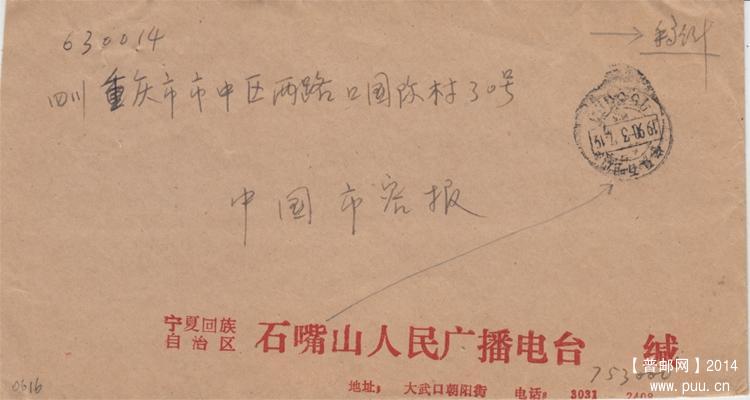 630014
→ 稿件
四川重庆市市中区两路口国际村30号
1990.3.7.19
中国市容报
宁夏回族自治区 石嘴山人民广播电台 缄
753000
地址：大武口朝阳街 电话：3031 2408
0616
【普邮网】2014
www.puu.cn